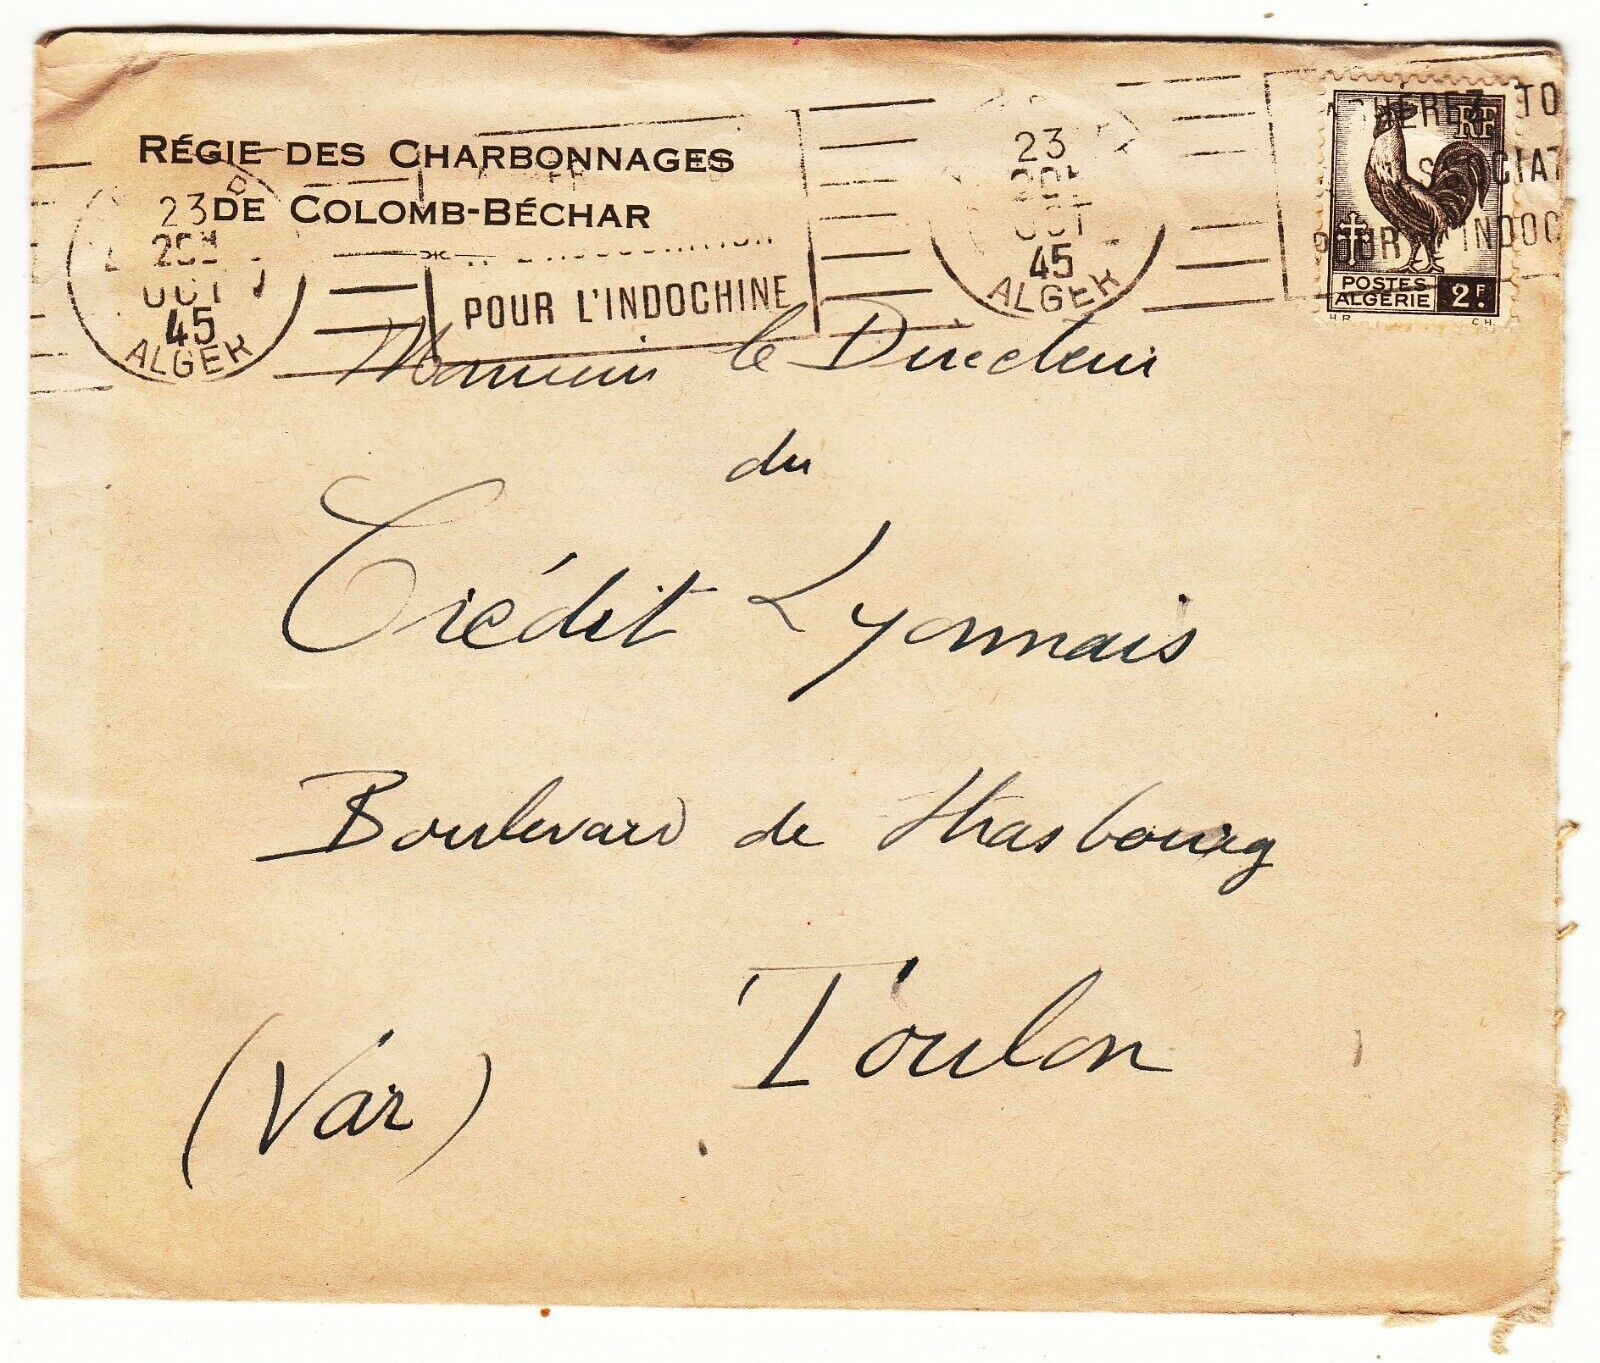 RÉGIE DES CHARBONNAGES
DE COLOMB-BÉCHAR
23
OCT
45
ALGER
POUR L'INDOCHINE
23
OCT
45
ALGER
ADHÉREZ TO
POUR L'INDOC
RF
POSTES
ALGÉRIE 2F.
H.R. C.H.
Monsieur le Directeur
du
Crédit Lyonnais
Boulevard de Strasbourg
Toulon
(Var)